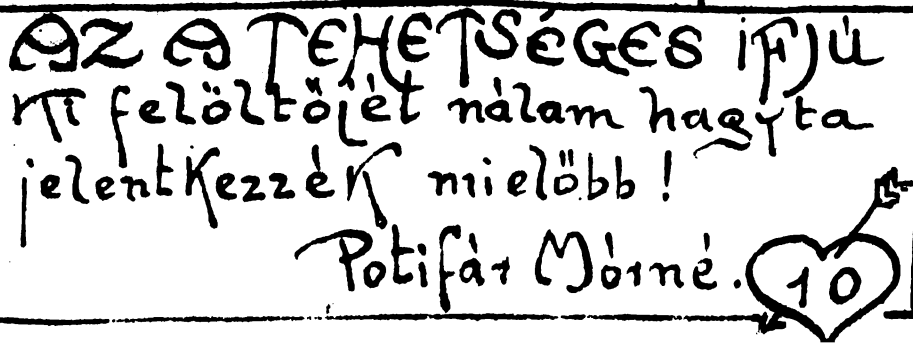 AZ A TEHETSÉGES IFJÚ
Ki felöltőjét nálam hagyta
jelentkezzék mielőbb!
Potifár Mórné.
10